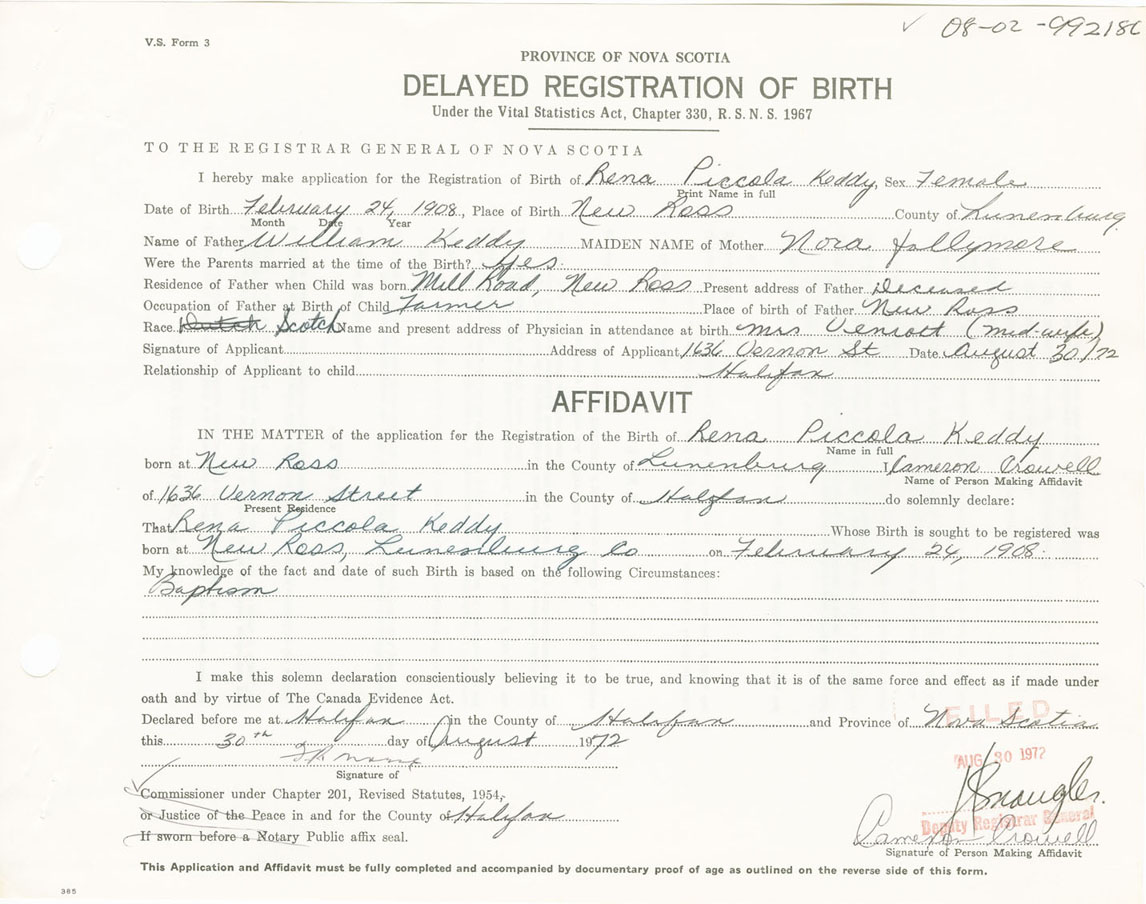 08-02-992180
V.S. Form 3
PROVINCE OF NOVA SCOTIA
DELAYED REGISTRATION OF BIRTH
Under the Vital Statistics Act, Chapter 330, R. S. N. S. 1967
TO THE REGISTRAR GENERAL OF NOVA SCOTIA
I hereby make application for the Registration of Birth of Rena Piccola Keddy, Sex Female
Print Name in full
Date of Birth February 24, 1908, Place of Birth New Ross County of Lunenburg
Month Date Year
Name of Father William Keddy MAIDEN NAME of Mother Nora Jollymore
Were the Parents married at the time of the Birth? Yes
Residence of Father when Child was born Mill Road, New Ross Present address of Father Deceased
Occupation of Father at Birth of Child Farmer Place of birth of Father New Ross
Race Dutch Scotch Name and present address of Physician in attendance at birth Mrs (mid-wife)
Signature of Applicant Address of Applicant 1636 Vernon St Date August 30/72
Relationship of Applicant to child Halifax
AFFIDAVIT
IN THE MATTER of the application for the Registration of the Birth of Rena Piccola Keddy
Name in full
born at New Ross in the County of Lunenburg I, Cameron Crowell
Name of Person Making Affidavit
of 1636 Vernon Street in the County of Halifax do solemnly declare:
Present Residence
That Rena Piccola Keddy Whose Birth is sought to be registered was
born at New Ross, Lunenburg Co on February 24, 1908
My knowledge of the fact and date of such Birth is based on the following Circumstances:
Baptism
I make this solemn declaration conscientiously believing it to be true, and knowing that it is of the same force and effect as if made under
oath and by virtue of The Canada Evidence Act.
Declared before me at Halifax in the County of Halifax and Province of Nova Scotia
FILED
this 30th day of August 1972
AUG 30 1972
Signature of
Commissioner under Chapter 201, Revised Statutes, 1954,
or Justice of the Peace in and for the County of Halifax
Deputy Registrar General
If sworn before a Notary Public affix seal.
Cameron Crowell
Signature of Person Making Affidavit
This Application and Affidavit must be fully completed and accompanied by documentary proof of age as outlined on the reverse side of this form.
385